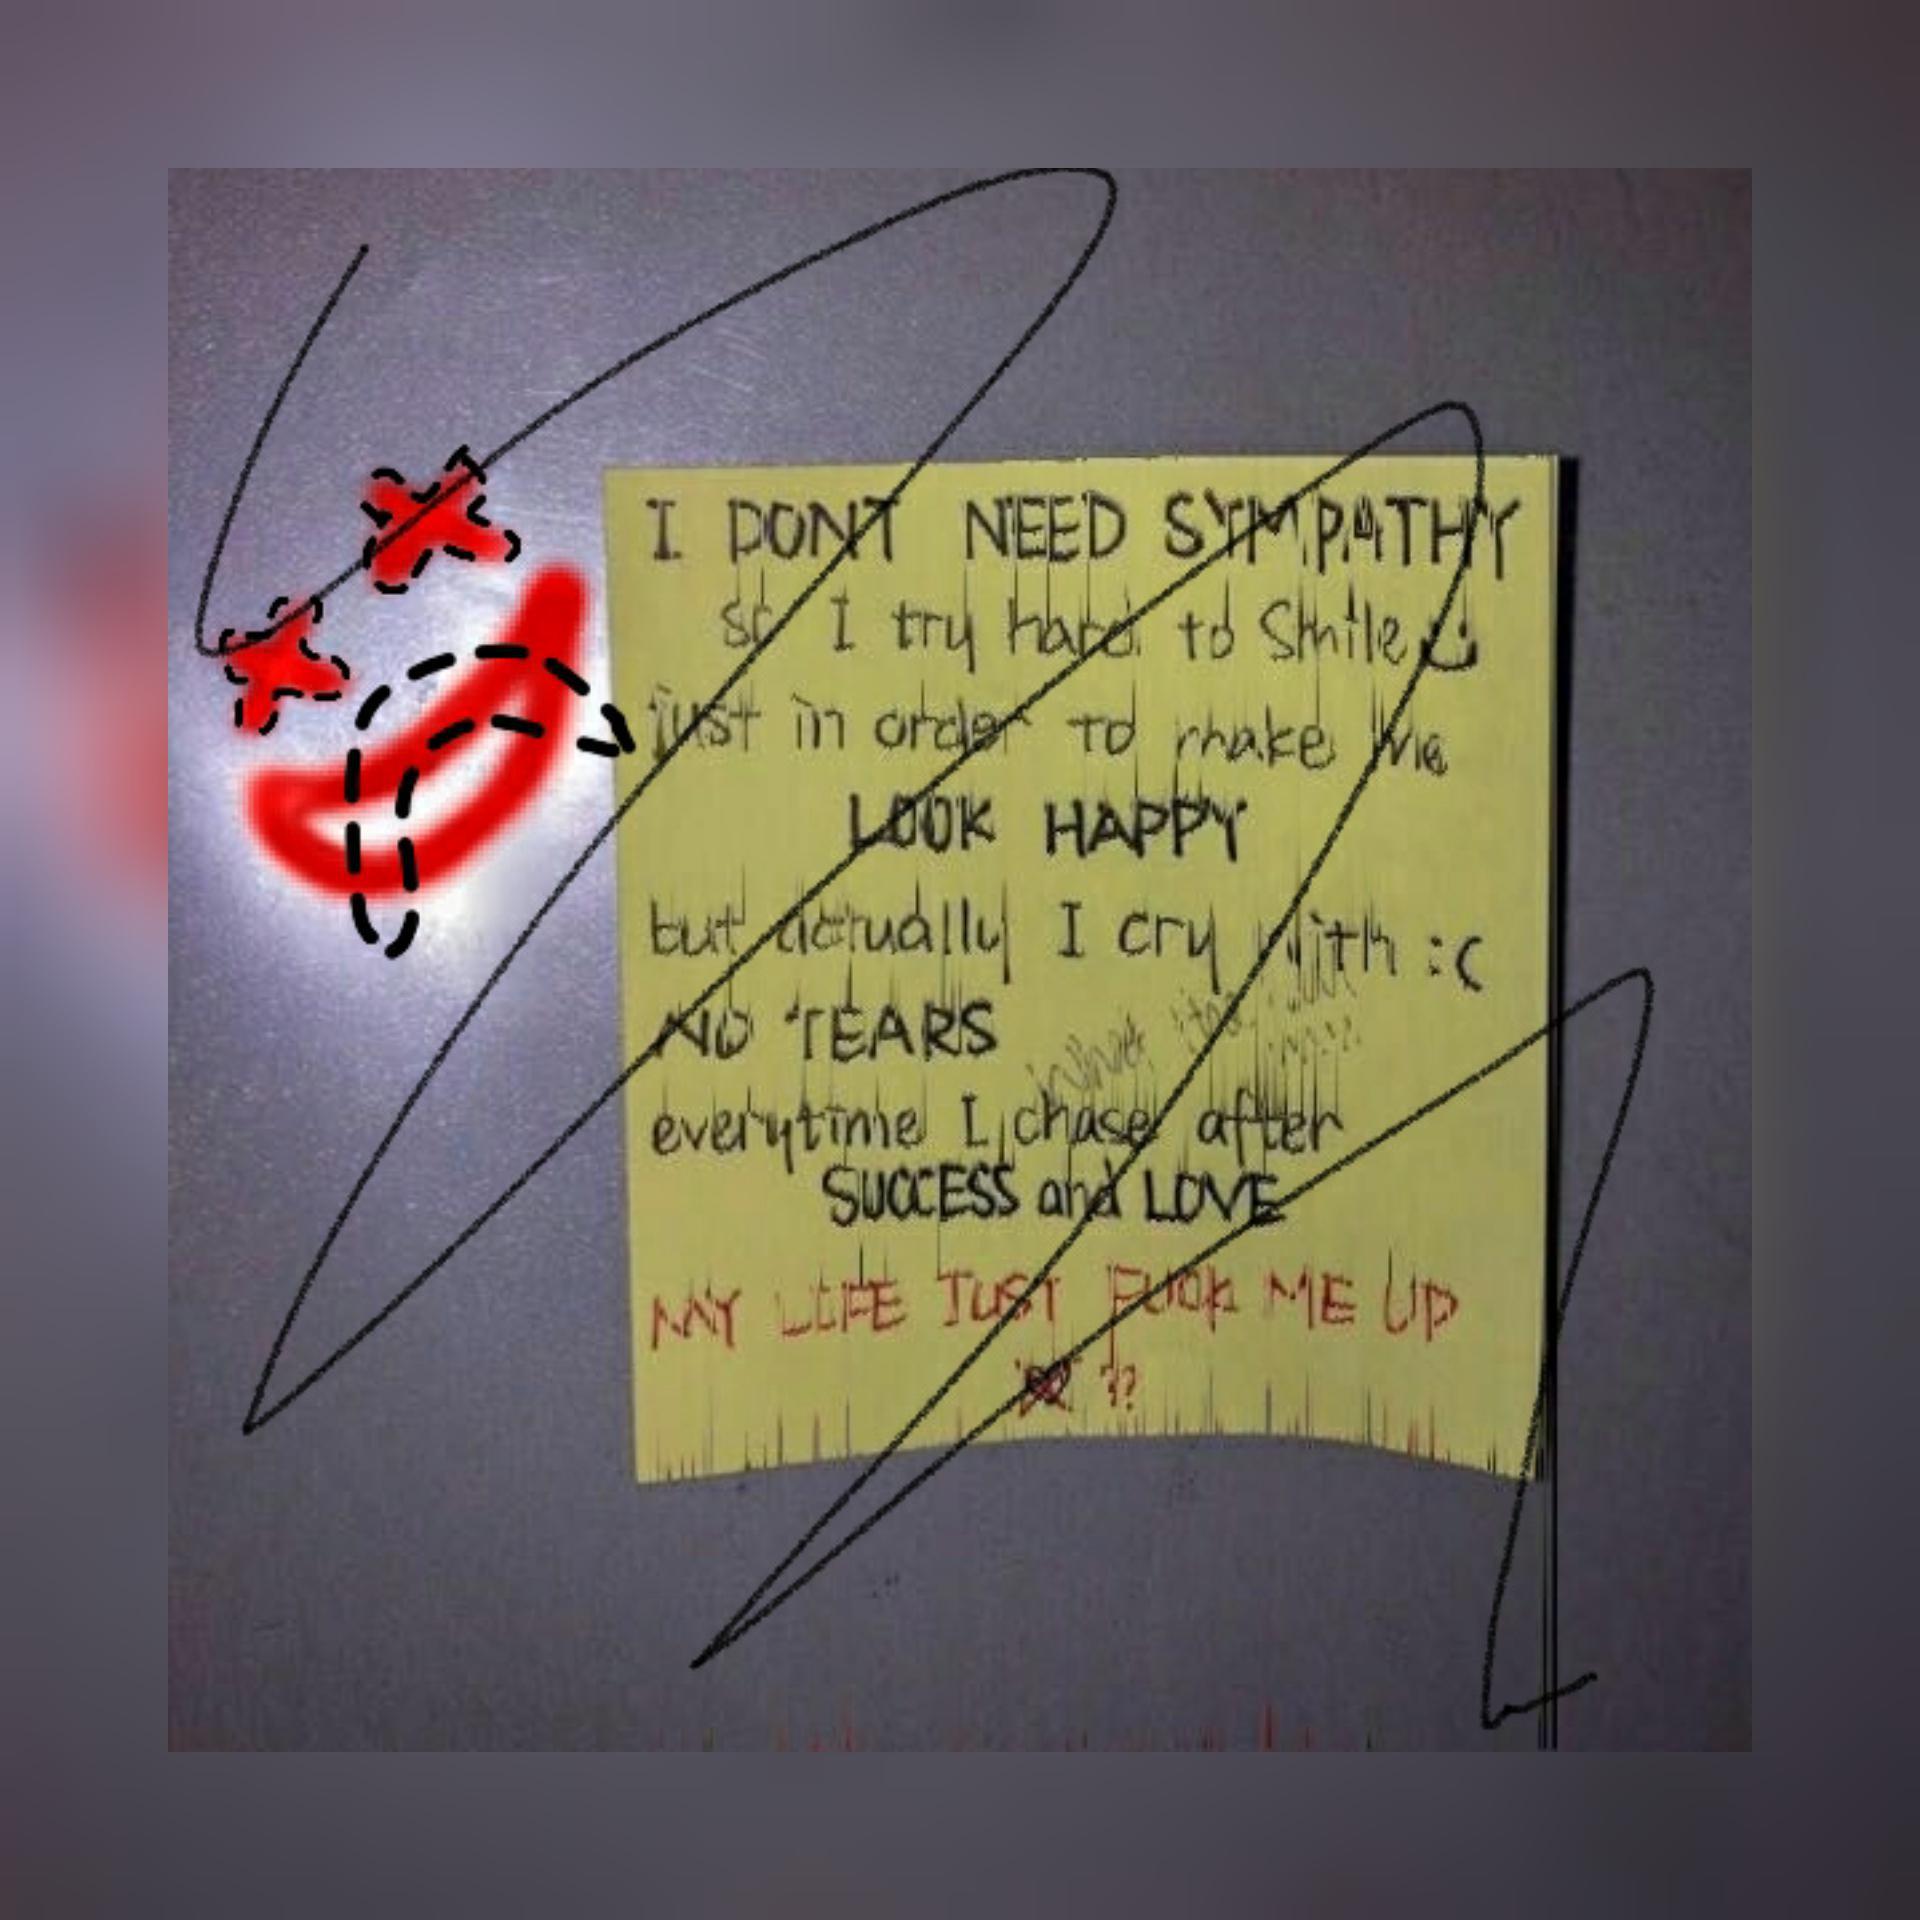 I DONT NEED SYMPATHY
so I try hard to smile
just in order to make me
LOOK HAPPY
but actually I cry with :(
NO TEARS
everytime I chase after
SUCCESS and LOVE
MY LIFE JUST FUCK ME UP
??